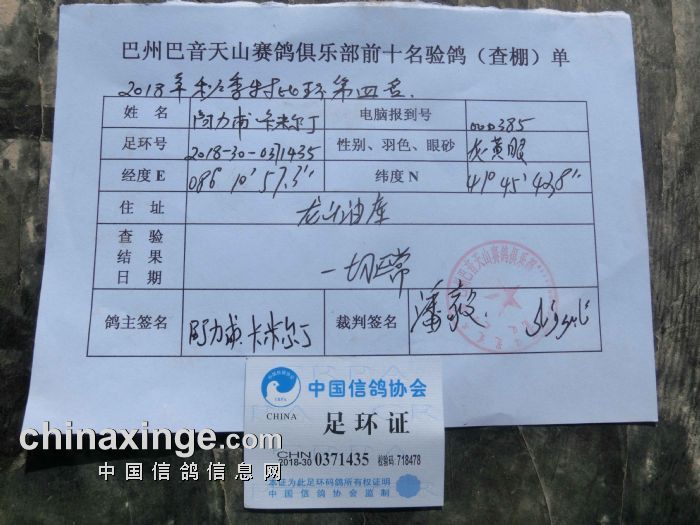 巴州巴音天山赛鸽俱乐部前十名验鸽（查棚）单
2018年秋季特比环第四名
姓 名 阿力甫·卡米尔丁 电脑报到号 000385
足环号 2018-30-0371435 性别、羽色、眼砂 灰黄眼
经度E 086°10′57.3″ 纬度N 41°45′42.8″
住 址 龙山油库
查 验 结 果 日 期 一切正常
巴音天山赛鸽俱乐部
鸽主签名 阿力甫 卡米尔丁 裁判签名 潘毅
中国信鸽协会
CHINA
足环证
CHN
2018-30 0371435 校验码: 718478
本证为此足环码鸽所有权证明
中国信鸽协会监制
chinaxinge.com
中国信鸽信息网